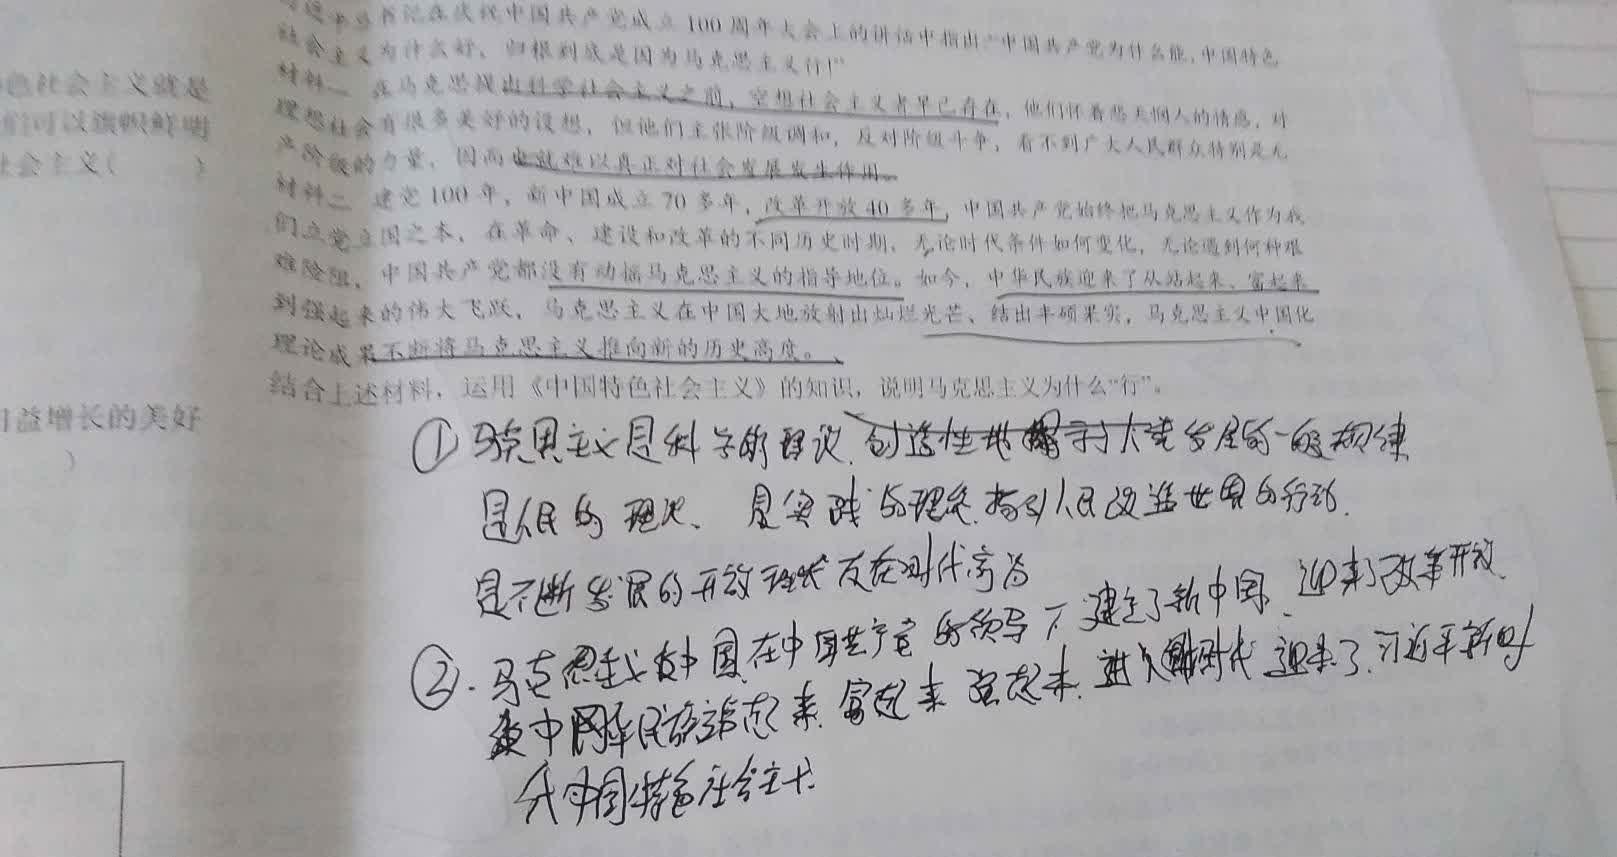 色社会主义就是
们可以旗帜鲜明
社会主义(　　)
日益增长的美好
)
习近平总书记在庆祝中国共产党成立100周年大会上的讲话中指出:“中国共产党为什么能,中国特色
社会主义为什么好,归根到底是因为马克思主义行!”
材料一 在马克思提出科学社会主义之前,空想社会主义者早已存在,他们怀着悲天悯人的情感,对
理想社会有很多美好的设想,但他们主张阶级调和,反对阶级斗争,看不到广大人民群众特别是无
产阶级的力量,因而也就难以真正对社会发展发生作用。
材料二 建党100年,新中国成立70多年,改革开放40多年,中国共产党始终把马克思主义作为我
们立党立国之本,在革命、建设和改革的不同历史时期,无论时代条件如何变化,无论遇到何种艰
难险阻,中国共产党都没有动摇马克思主义的指导地位。如今,中华民族迎来了从站起来、富起来
到强起来的伟大飞跃,马克思主义在中国大地放射出灿烂光芒、结出丰硕果实,马克思主义中国化
理论成果不断将马克思主义推向新的历史高度。
结合上述材料,运用《中国特色社会主义》的知识,说明马克思主义为什么“行”。
①马克思主义是科学的理论、创造性地揭示了人类发展的一般规律
是人民的理论、是实践的理论,指引人民改造世界的行动.
是不断发展的开放理论
②.马克思主义在中国,在中国共产党的领导下建立了新中国、迎来了改革开放、
中华民族站起来、富起来、强起来.进入新时代迎来了习近平新时
代中国特色社会主义